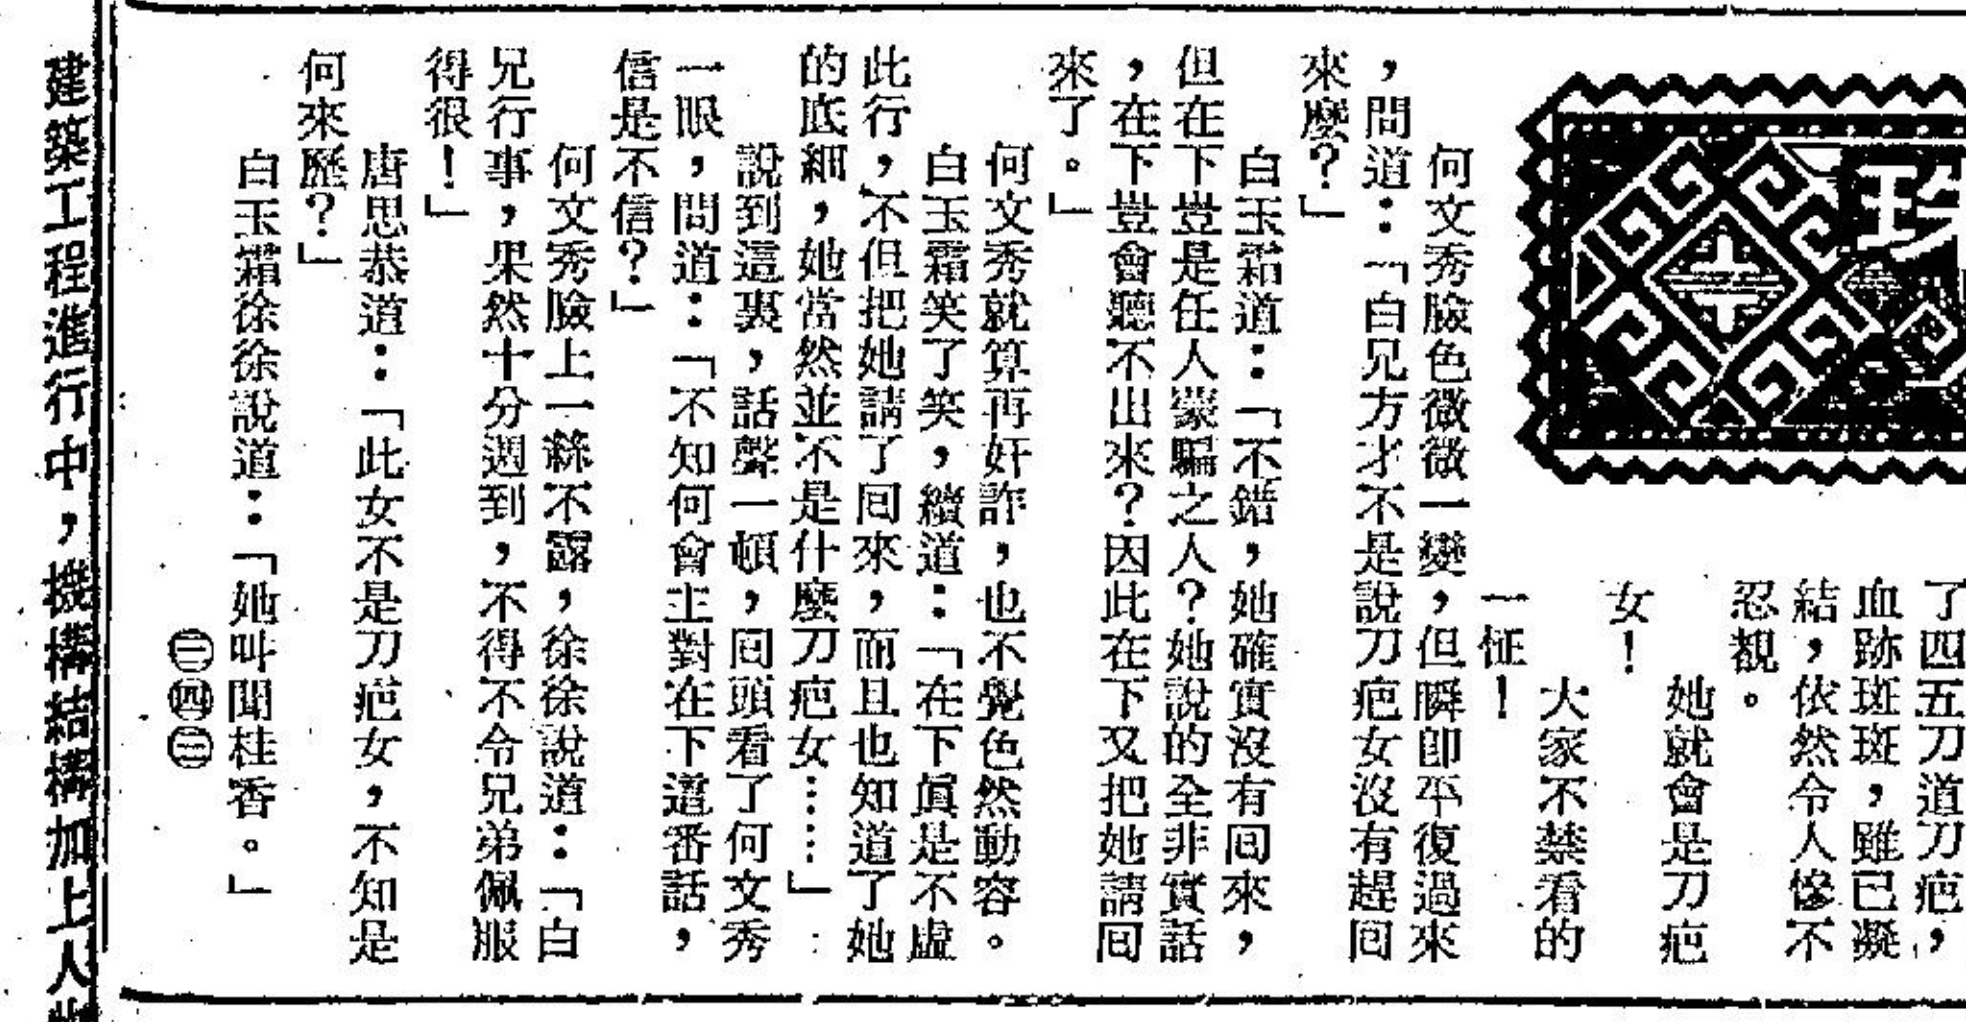 珍
了四五刀道刀疤，
血跡斑斑，雖已凝
結，依然令人慘不
忍覩。
她就會是刀疤
女！
大家不禁看的
一怔！
何文秀臉色微微一變，但瞬卽平復過來
，問道：「白兄方才不是說刀疤女沒有趕囘
來麼？」
白玉霜道：「不錯，她確實沒有囘來，
但在下豈是任人蒙騙之人？她說的全非實話
，在下豈會聽不出來？因此在下又把她請囘
來了。」
何文秀就算再奸詐，也不覺色然動容。
白玉霜笑了笑，續道：「在下眞是不虛
此行，不但把她請了囘來，而且也知道了她
的底細，她當然並不是什麼刀疤女……」
說到這裏，話聲一頓，囘頭看了何文秀
一眼，問道：「不知何會主對在下這番話，
信是不信？」
何文秀臉上一絲不露，徐徐說道：「白
兄行事，果然十分週到，不得不令兄弟佩服
得很！」
唐思恭道：「此女不是刀疤女，不知是
何來歷？」
白玉霜徐徐說道：「她叫聞桂香。」
建築工程進行中，機構結構加上人